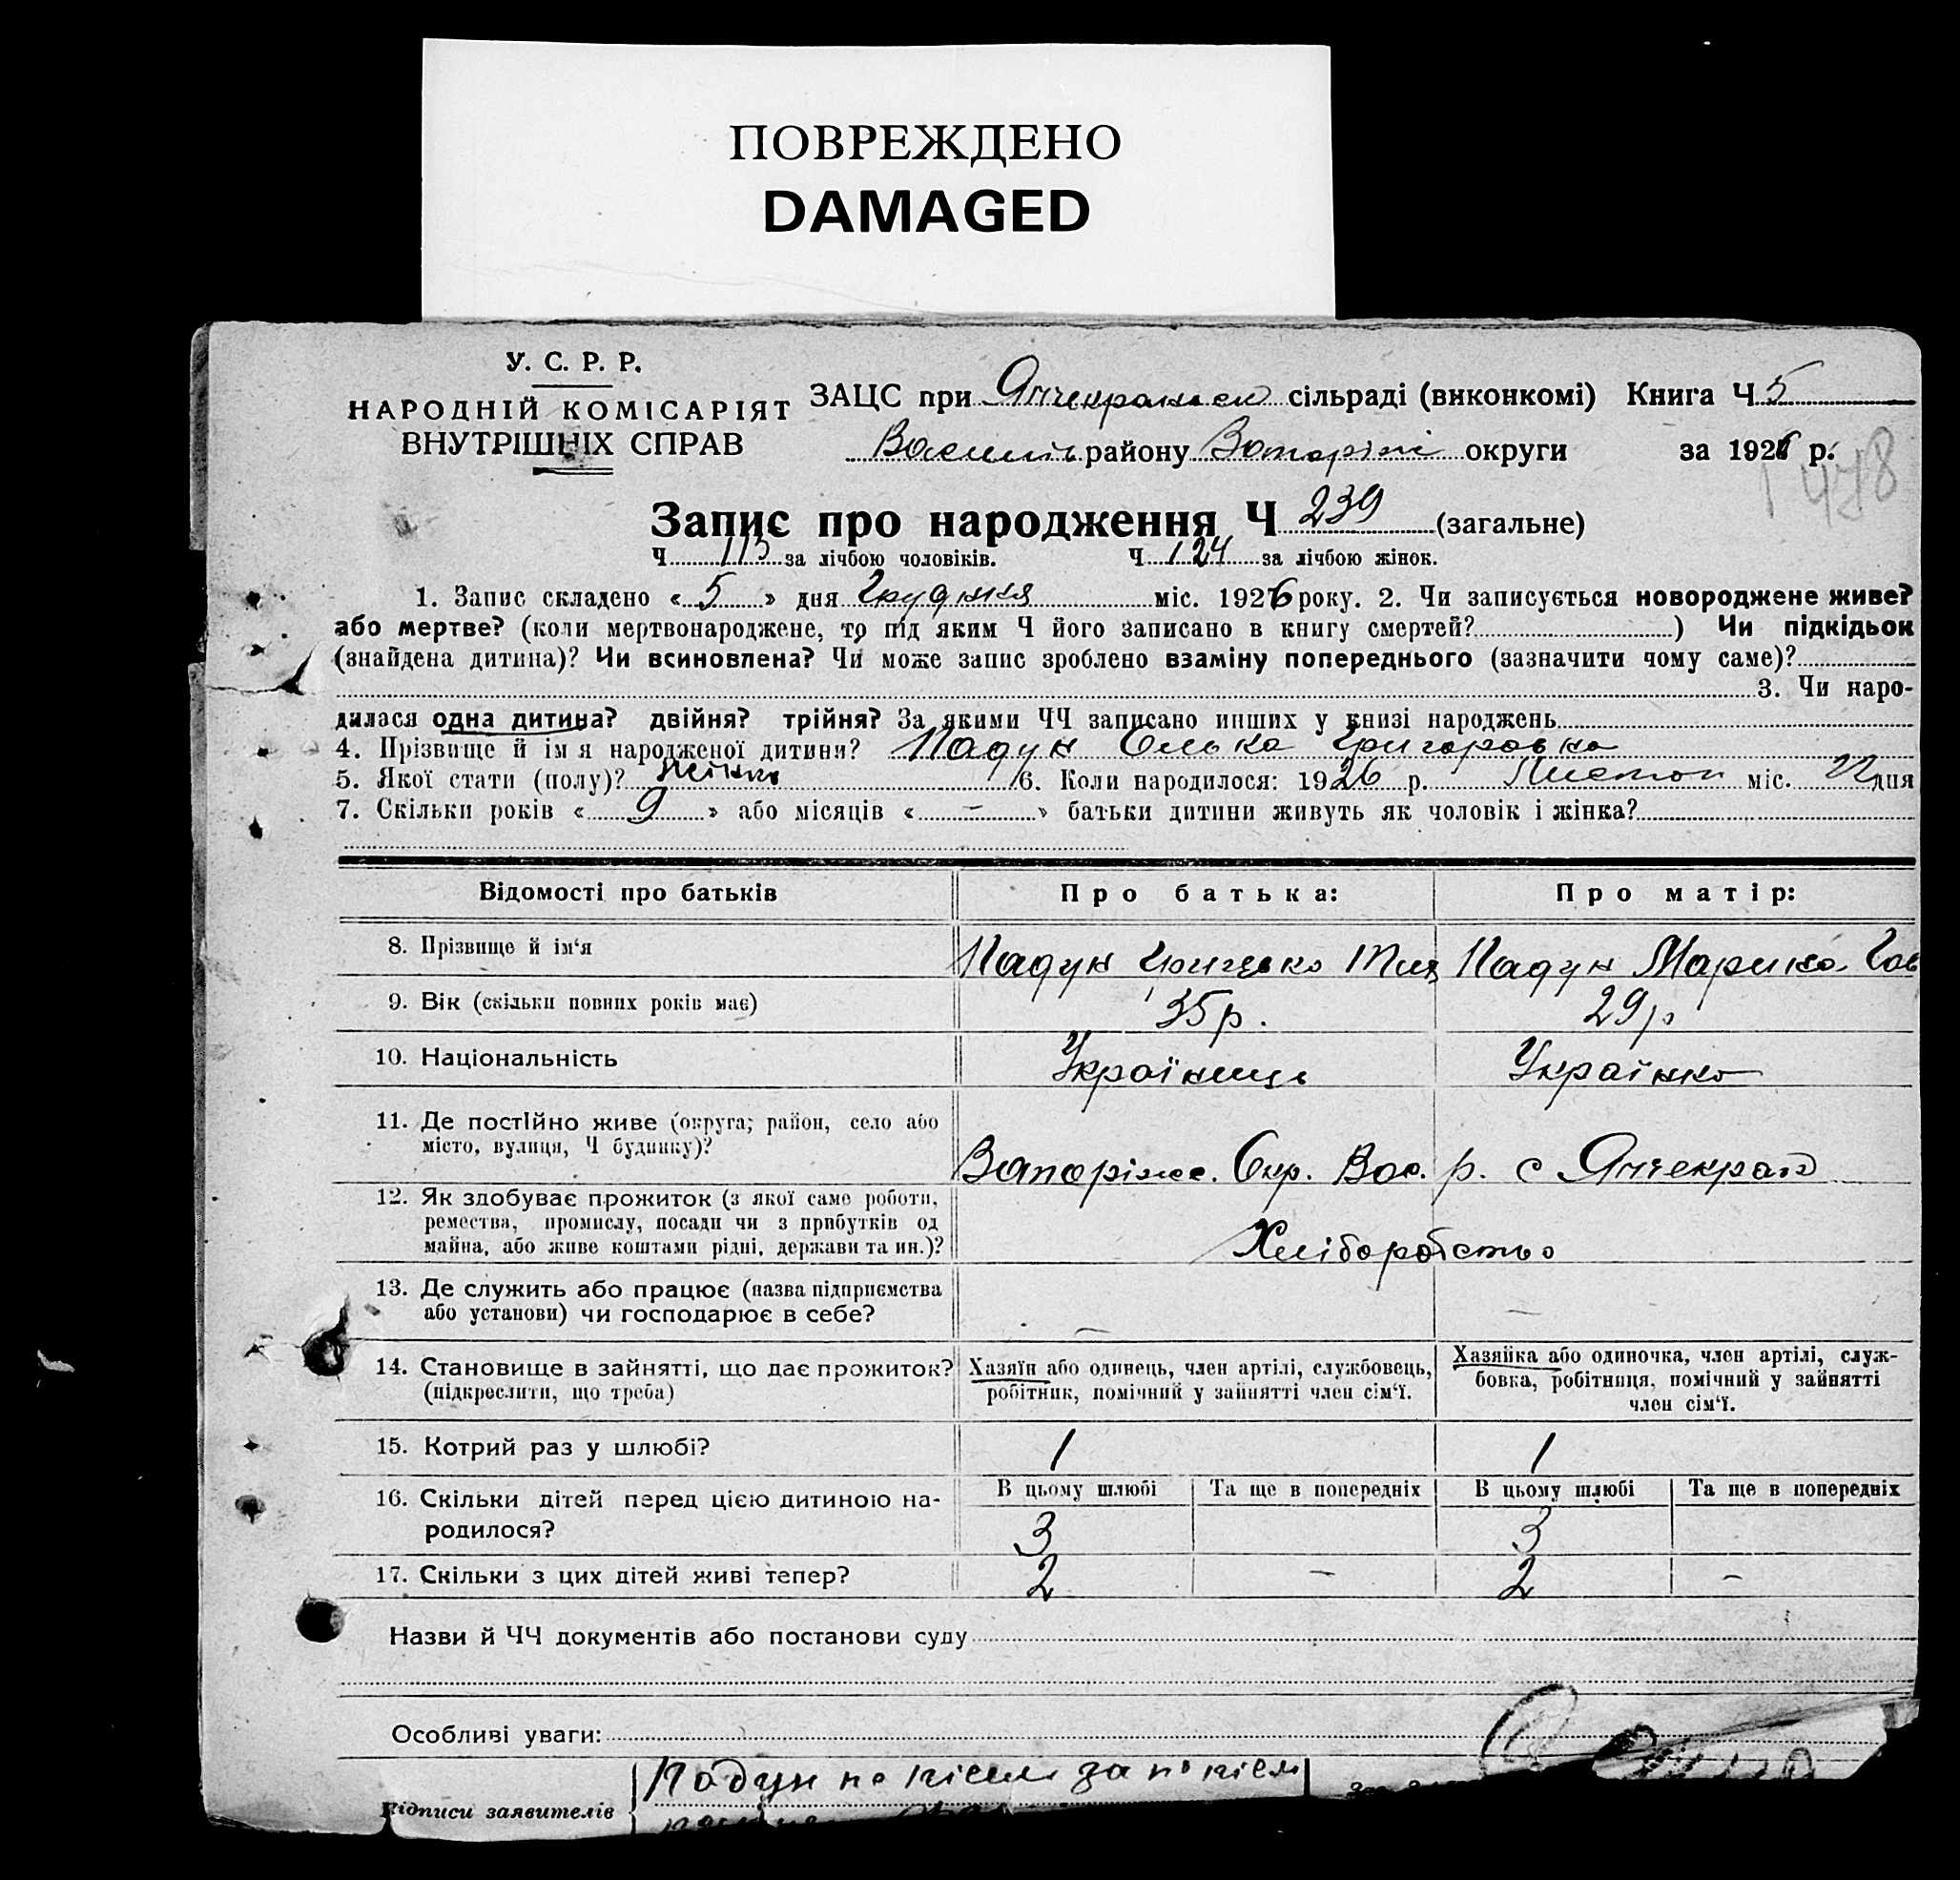 ПОВРЕЖДЕНО
DAMAGED
У. С. Р. Р.
НАРОДНІЙ КОМІСАРІЯТ
ВНУТРІШНІХ СПРАВ
ЗАЦС при Янчекракськ сільраді (виконкомі) Книга Ч 5
району Запоріж округи за 1926 р.
1478
Запис про народження Ч 239 (загальне)
Ч 113 за лічбою чоловіків. Ч 124 за лічбою жінок.
1. Запис складено « 5 » дня Грудня міс. 1926 року. 2. Чи записується новороджене живе?
або мертве? (коли мертвонароджене, то під яким Ч його записано в книгу смертей? ) Чи підкідьок
(знайдена дитина)? Чи всиновлена? Чи може запис зроблено взаміну попереднього (зазначити чому саме)?
3. Чи наро-
дилася одна дитина? двійня? трійня? За якими ЧЧ записано инших у книзі народжень
4. Прізвище й ім'я народженої дитини? Падун Олька Григоровна
5. Якої стати (полу)? жіноч 6. Коли народилося: 1926 р. Листоп міс. 22 дня
7. Скільки років « 9 » або місяців « - » батьки дитини живуть як чоловік і жінка?
Відомості про батьків Про батька: Про матір:
8. Прізвище й ім'я Падун Грицько Тим Падун Марика Гав
9. Вік (скільки повних років має) 35 р. 29 р
10. Національність Українець Українка
11. Де постійно живе (округа; район, село або
місто, вулиця, Ч будинку)?
Запоріжс. Окр. Вас. р. с Янчекрак
12. Як здобуває прожиток (з якої саме роботи,
ремества, промислу, посади чи з прибутків од
майна, або живе коштами рідні, держави та ин.)?
Хліборобство
13. Де служить або працює (назва підприємства
або установи) чи господарює в себе? - -
14. Становище в зайнятті, що дає прожиток?
(підкреслити, що треба)
Хазяїн або одинець, член артілі, службовець,
робітник, помічний у зайнятті член сім'ї.
Хазяйка або одиночка, член артілі, служ-
бовка, робітниця, помічний у зайнятті
член сім'ї.
15. Котрий раз у шлюбі? 1 1
16. Скільки дітей перед цією дитиною на-
родилося?
В цьому шлюбі Та ще в попередніх В цьому шлюбі Та ще в попередніх
3 3
17. Скільки з цих дітей живі тепер? 2 - 2 -
Назви й ЧЧ документів або постанови суду
Особливі уваги:
Підписи заявителів Падун